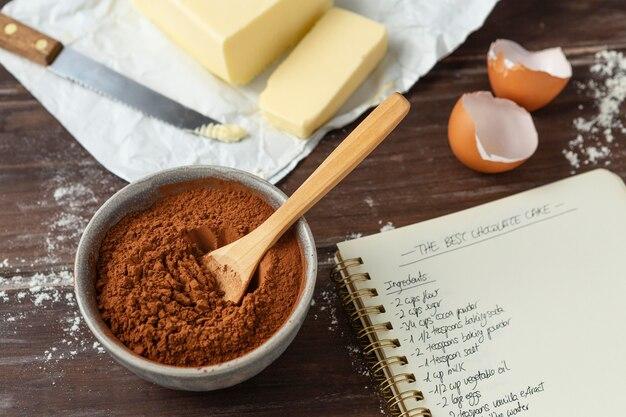 — THE BEST CHOCOLATE CAKE —
Ingredients:
- 2 cups flour
- 2 cups sugar
- 3/4 cups cocoa powder
- 1 1/2 teaspoons baking soda
- 2 teaspoons baking powder
- 1 teaspoon salt
- 1 cup milk
- 1/2 cup vegetable oil
- 2 large eggs
- teaspoons vanilla extract
water